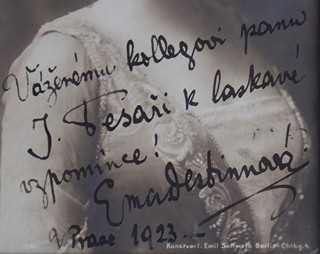 Váženému kollegovi panu
J. Tesaři k laskavé
vzpomínce!
Ema Destinnová.
V Praze 1923.
Kunstverl. Emil Schwalb Berlin-Chlbg.4